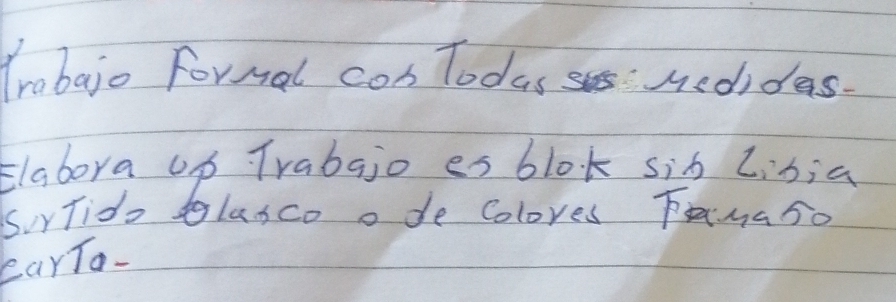 Trabajo Formal con Todas sus medidas-
Elabora un Trabajo en blok sin Linia
surTido blanco o de Colores Tamaño
carTa-